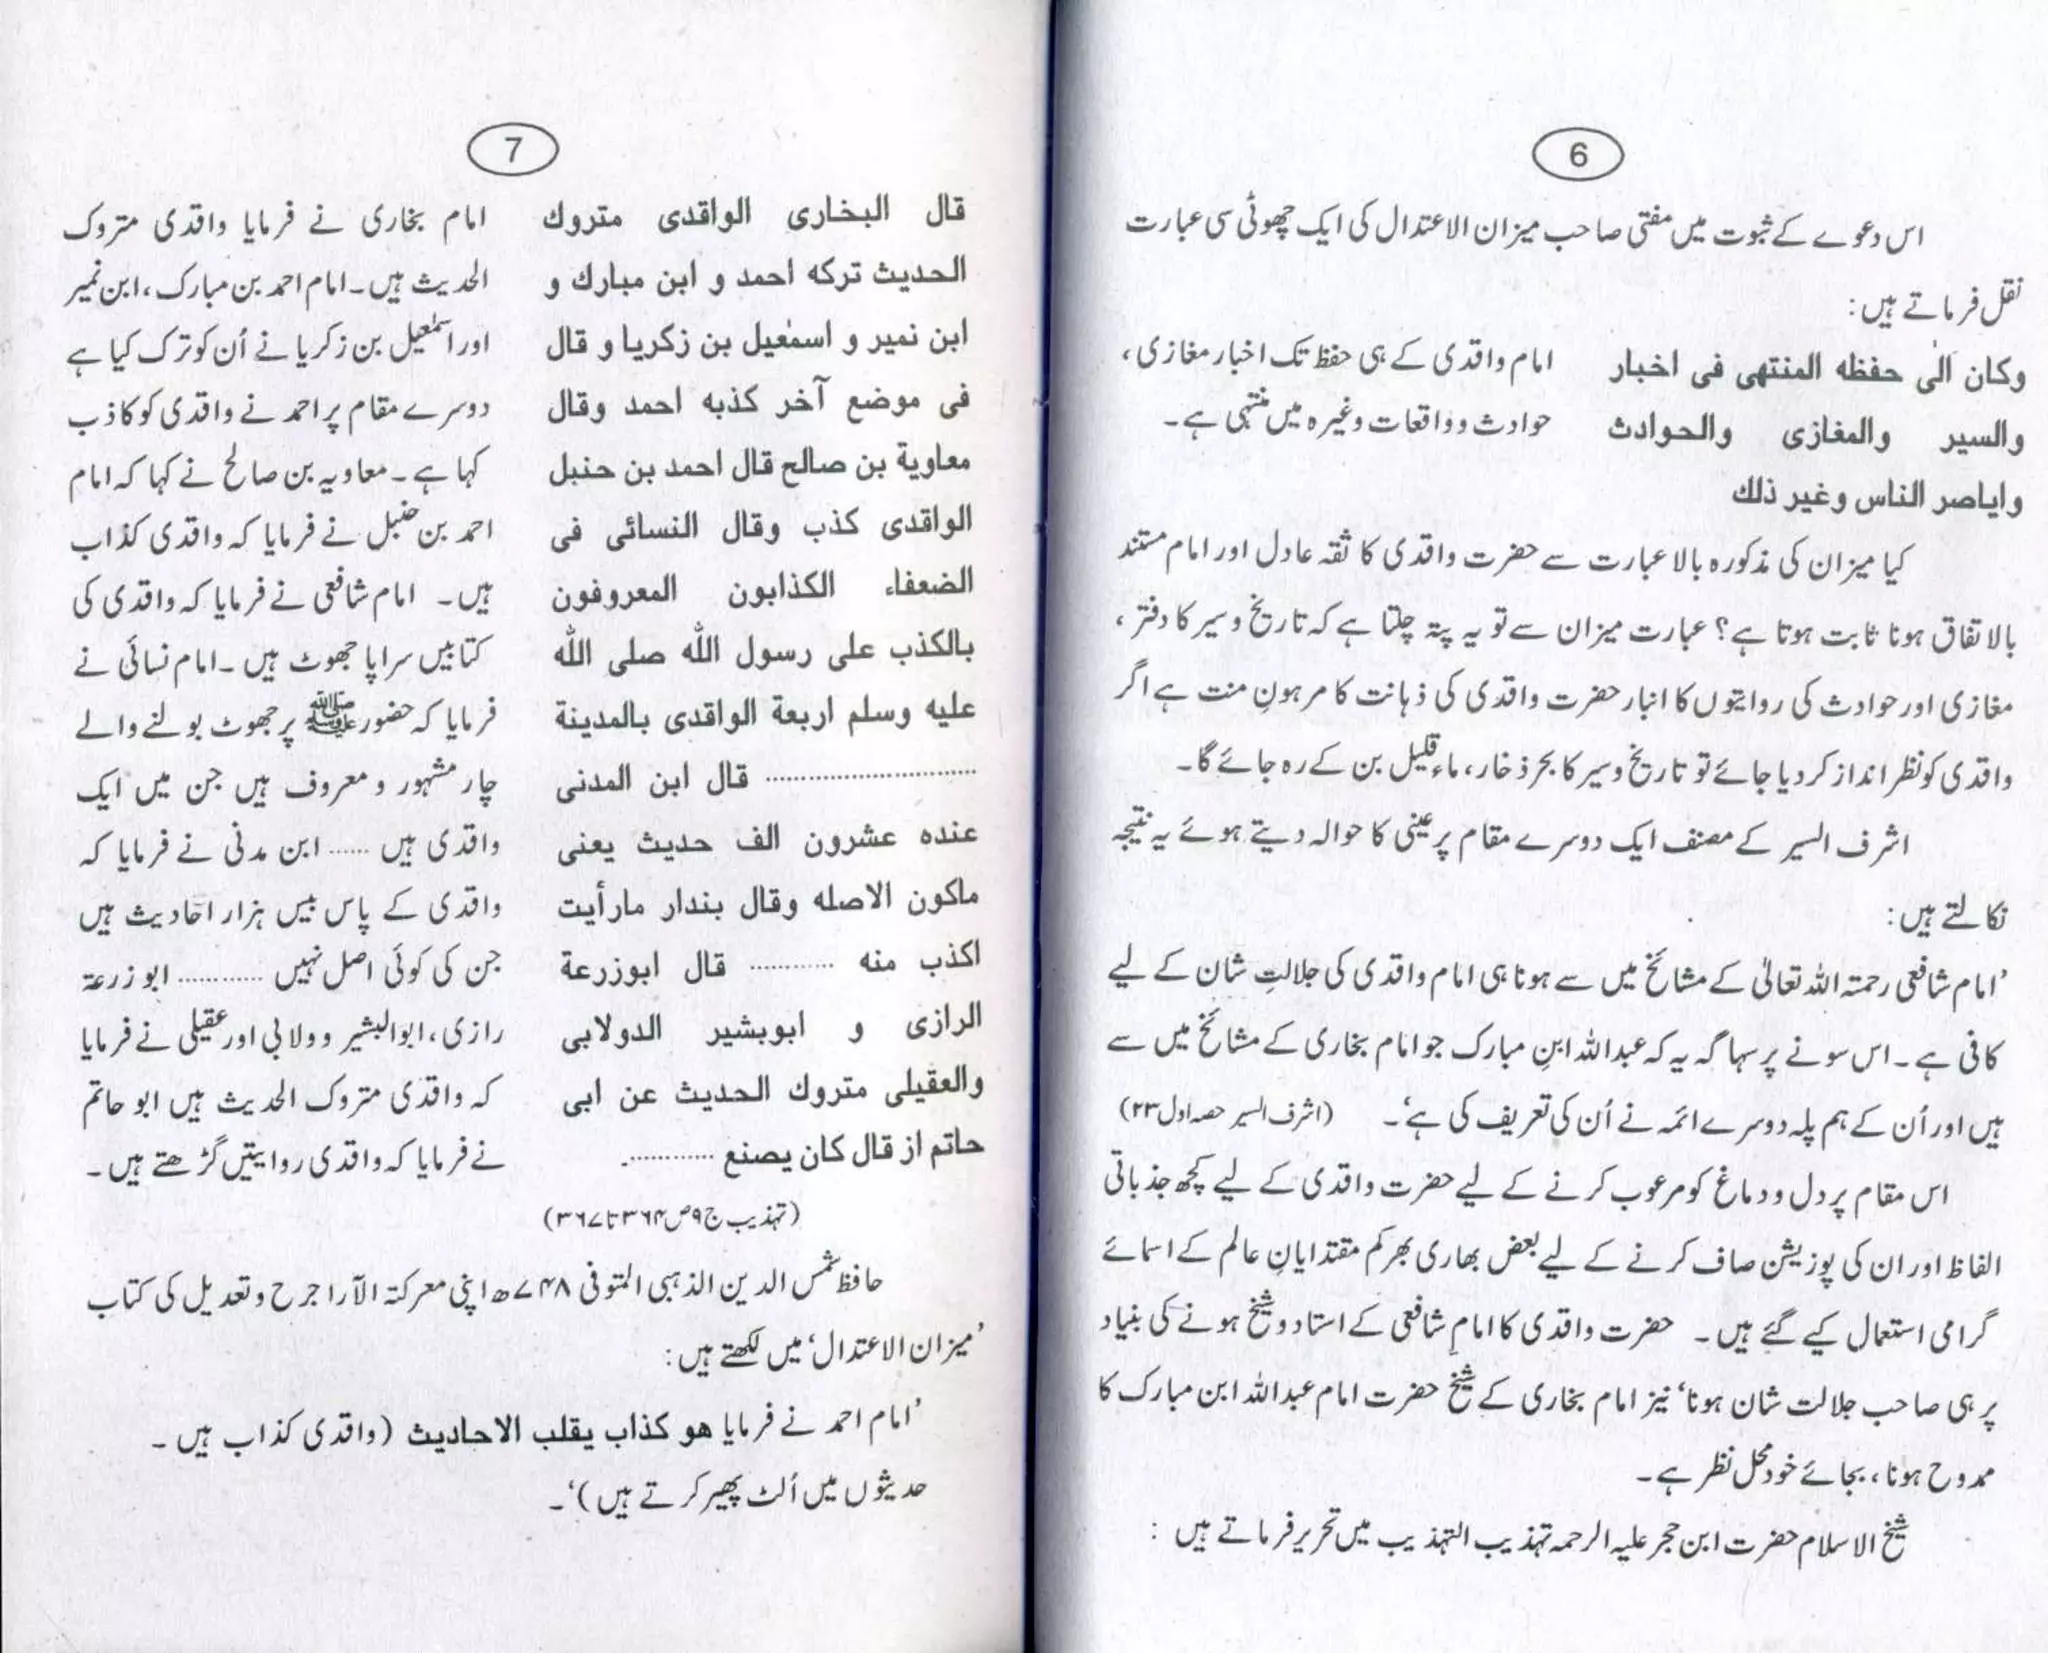 6
اس دعوے کے ثبوت میں مفتی صاحب میزان الاعتدال کی ایک چھوٹی سی عبارت
نقل فرماتے ہیں:
وکان الٰی حفظه المنتهی فی اخبار
والسیر والمغازی والحوادث
وایاصر الناس وغیر ذلك
امام واقدی کے ہی حفظ تک اخبار مغازی،
حوادث وواقعات وغیرہ میں منتہی ہے۔
کیا میزان کی مذکورہ بالا عبارت سے حضرت واقدی کا ثقہ عادل اور امام مستند
بالاتفاق ہونا ثابت ہوتا ہے؟ عبارت میزان سے تو یہ پتہ چلتا ہے کہ تاریخ وسیر کا دفتر،
مغازی اور حوادث کی روایتوں کا انبار حضرت واقدی کی ذہانت کا مرہونِ منت ہے اگر
واقدی کو نظر انداز کر دیا جائے تو تاریخ وسیر کا بحر ذخار، ماء قلیل بن کے رہ جائے گا۔
اشرف السیر کے مصنف ایک دوسرے مقام پر عینی کا حوالہ دیتے ہوئے یہ نتیجہ
نکالتے ہیں:
’امام شافعی رحمتہ اللہ تعالیٰ کے مشائخ میں سے ہونا ہی امام واقدی کی جلالتِ شان کے لیے
کافی ہے۔ اس سونے پر سہاگہ یہ کہ عبداللہ ابنِ مبارک جو امام بخاری کے مشائخ میں سے
ہیں اور اُن کے ہم پلہ دوسرے ائمہ نے اُن کی تعریف کی ہے‘۔ (اشرف السیر حصہ اول ۲۳)
اس مقام پر دل و دماغ کو مرعوب کرنے کے لیے حضرت واقدی کے لیے کچھ جذباتی
الفاظ اور ان کی پوزیشن صاف کرنے کے لیے بعض بھاری بھرکم مقتدایانِ عالم کے اسمائے
گرامی استعمال کیے گئے ہیں۔ حضرت واقدی کا امامِ شافعی کے استاد و شیخ ہونے کی بنیاد
پر ہی صاحب جلالت شان ہونا‘ نیز امام بخاری کے شیخ حضرت امام عبداللہ ابن مبارک کا
ممدوح ہونا، بجائے خود محل نظر ہے۔
شیخ الاسلام حضرت ابن حجر علیہ الرحمہ تہذیب التہذیب میں تحریر فرماتے ہیں :
7
قال البخاری الواقدی متروك
الحدیث ترکه احمد و ابن مبارك و
ابن نمیر و اسمٰعیل بن زکریا و قال
فی موضع آخر کذبه احمد وقال
معاویة بن صالح قال احمد بن حنبل
الواقدی کذب وقال النسائی فی
الضعفاء الکذابون المعروفون
بالکذب علی رسول الله صلی الله
علیه وسلم اربعة الواقدی بالمدینة
............................ قال ابن المدنی
عنده عشرون الف حدیث یعنی
ماکون الاصله وقال بندار مارأیت
اکذب منه ........... قال ابوزرعة
الرازی و ابوبشیر الدولابی
والعقیلی متروك الحدیث عن ابی
حاتم از قال کان یصنع ...........۔
امام بخاری نے فرمایا واقدی متروک
الحدیث ہیں۔ امام احمد بن مبارک، ابن نمیر
اور اسمٰعیل بن زکریا نے اُن کو ترک کیا ہے
دوسرے مقام پر احمد نے واقدی کو کاذب
کہا ہے۔ معاویہ بن صالح نے کہا کہ امام
احمد بن حنبل نے فرمایا کہ واقدی کذاب
ہیں۔ امام شافعی نے فرمایا کہ واقدی کی
کتابیں سراپا جھوٹ ہیں۔ امام نسائی نے
فرمایا کہ حضور ﷺ پر جھوٹ بولنے والے
چار مشہور و معروف ہیں جن میں ایک
واقدی ہیں ...... ابن مدنی نے فرمایا کہ
واقدی کے پاس بیس ہزار احادیث ہیں
جن کی کوئی اصل نہیں ........... ابوزرعۃ
رازی، ابوالبشیر وولابی اور عقیلی نے فرمایا
کہ واقدی متروک الحدیث ہیں ابو حاتم
نے فرمایا کہ واقدی روایتیں گڑھتے ہیں۔
(تہذیب ج۹ ص ۳۶۴ تا ۳۶۷)
حافظ شمس الدین الذہبی المتوفی ۷۴۸ھ اپنی معرکتہ الآرا جرح و تعدیل کی کتاب
’میزان الاعتدال‘ میں لکھتے ہیں:
’امام احمد نے فرمایا هو کذاب یقلب الاحادیث (واقدی کذاب ہیں۔
حدیثوں میں اُلٹ پھیر کرتے ہیں)‘۔